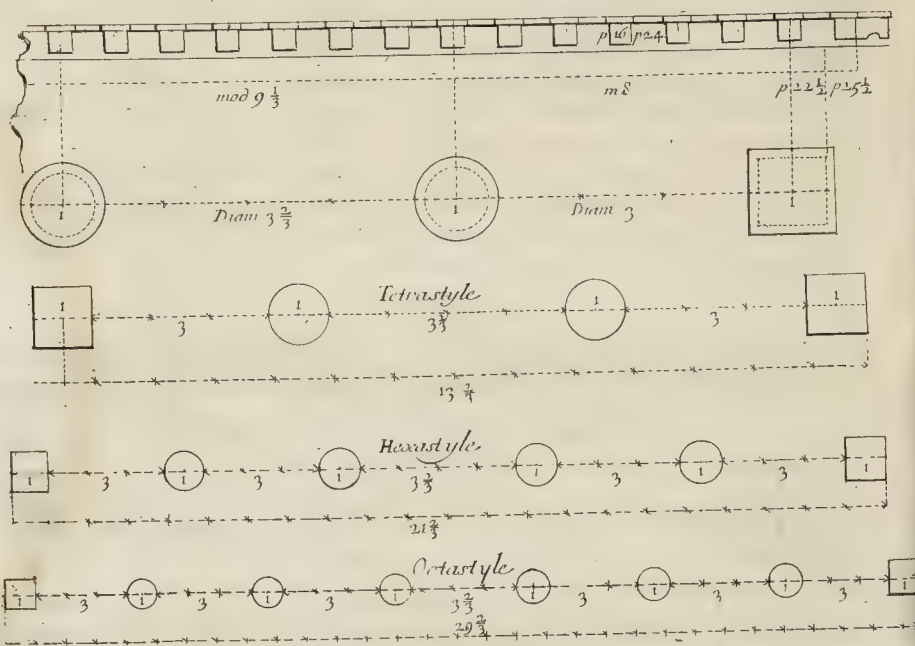 p 16 p 24
mod 9 1/3 m 8 p 22 1/2 p 25 1/2
1 Diam 3 2/3 1 Diam 3 1
Tetrastyle
1 1 1 1
3 3 2/3 3
13 2/3
Hexastyle
1 3 1 3 1 3 2/3 1 3 1 3 1
21 2/3
Octastyle
1 3 1 3 1 3 1 3 2/3 1 3 1 3 1 3 1
29 2/3